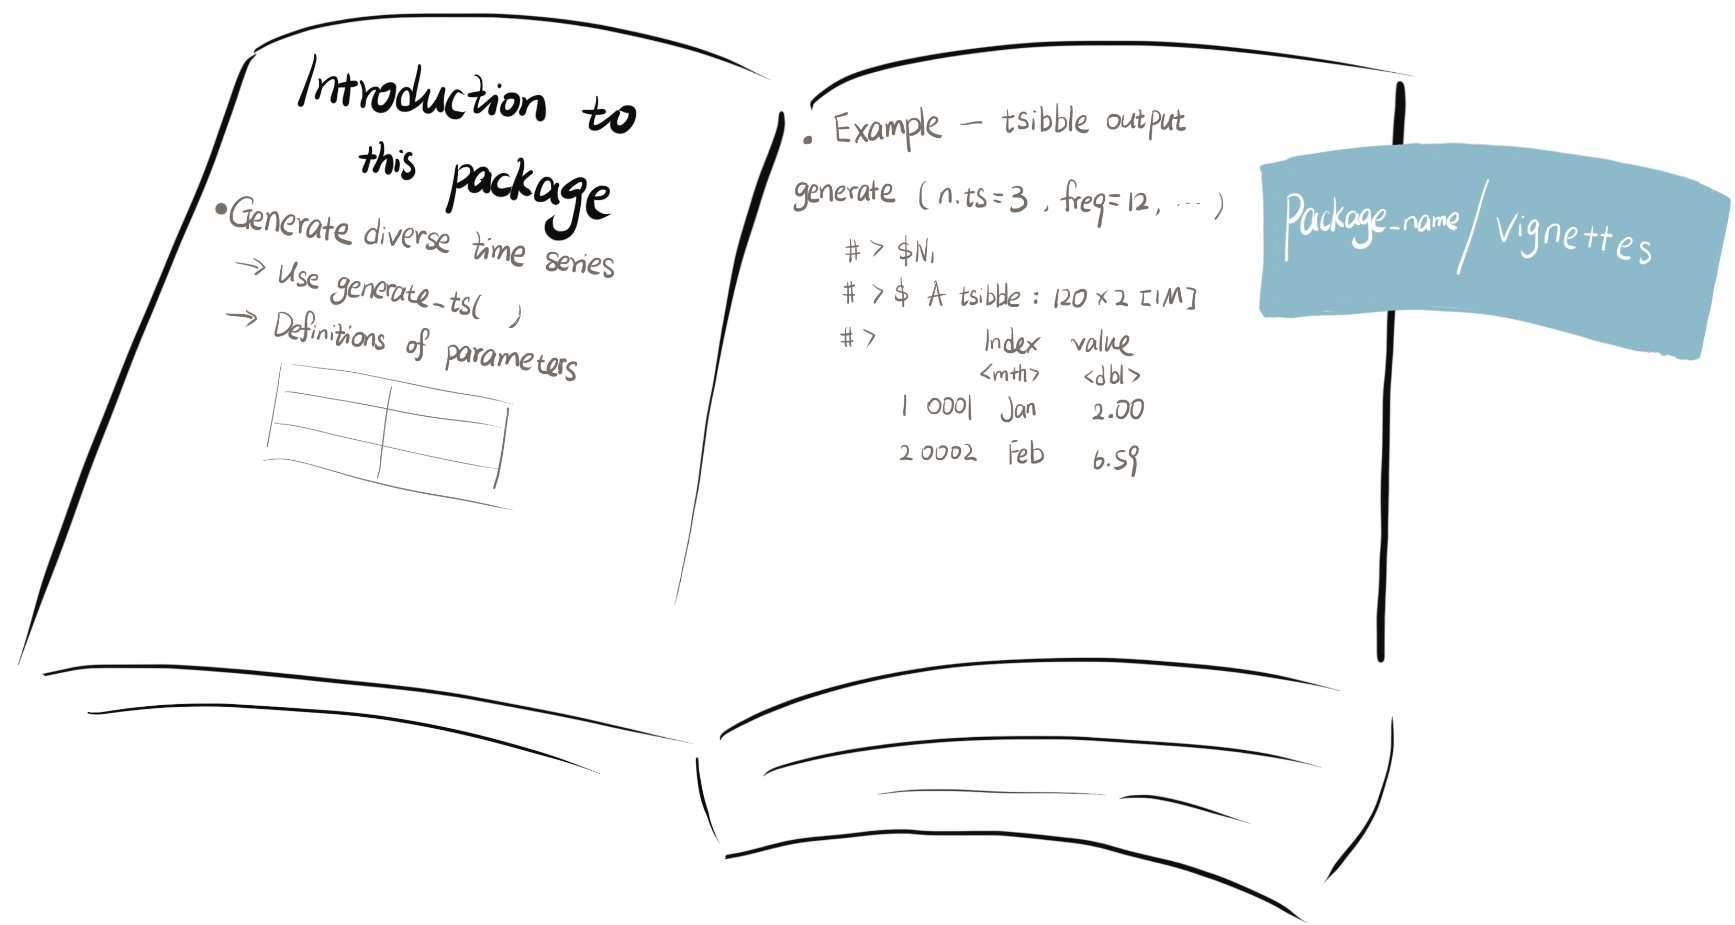 Introduction to
this package
•Generate diverse time series
→ Use generate_ts( )
→ Definitions of parameters
. Example — tsibble output
generate ( n.ts=3 , freq=12, ... )
# > $N1
# > $ A tsibble : 120 × 2 [1M]
# > Index value
<mth> <dbl>
1 0001 Jan 2.00
2 0002 Feb 6.59
Package_name/vignettes